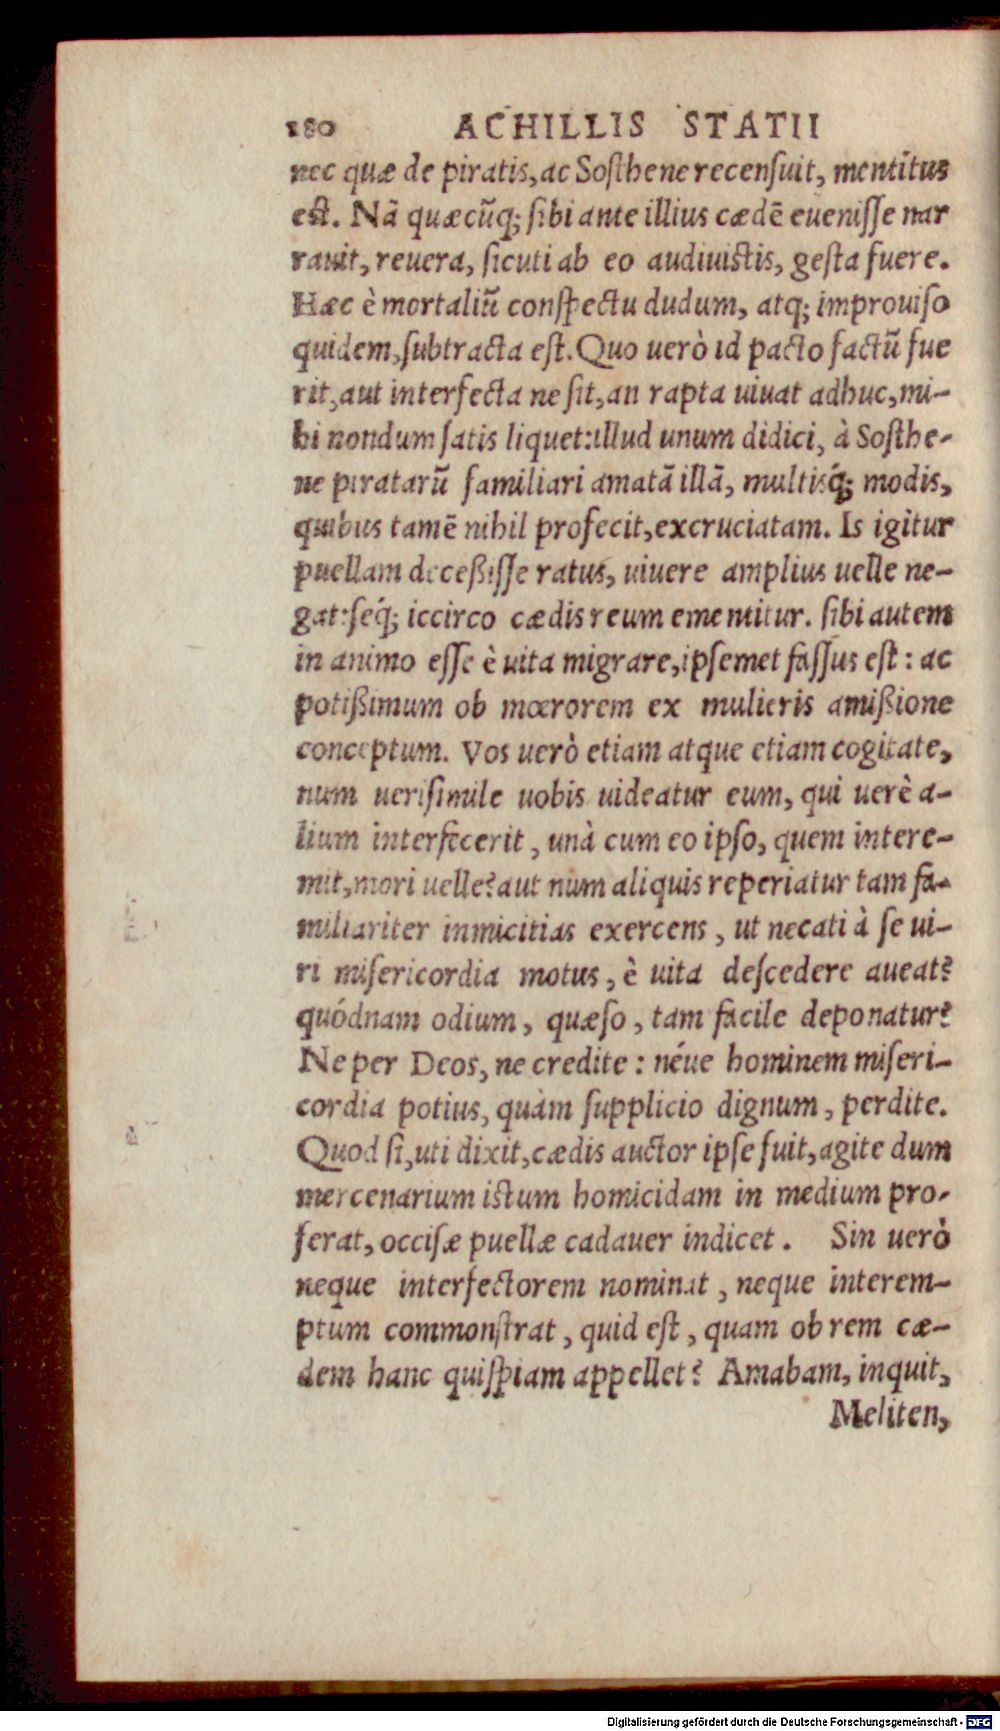 180 ACHILLIS STATII
nec quæ de piratis, ac Sosthene recensuit, mentitus
est. Nã quæcũq; sibi ante illius cædẽ euenisse nar
rauit, reuera, sicuti ab eo audiuistis, gesta fuere.
Hæc è mortaliũ conspectu dudum, atq; improuiso
quidem, subtracta est. Quo uerò id pacto factũ fue
rit, aut interfecta ne sit, an rapta uiuat adhuc, mi-
hi nondum satis liquet: illud unum didici, à Sosthe-
ne piratarũ familiari amatã illã, multisq́; modis,
quibus tamẽ nihil profecit, excruciatam. Is igitur
puellam deceßisse ratus, uiuere amplius uelle ne-
gat: seq́; iccirco cædis reum ementitur. sibi autem
in animo esse è uita migrare, ipsemet fassus est: ac
potißimum ob mœrorem ex mulieris amißione
conceptum. Vos uerò etiam atque etiam cogitate,
num uerisimile uobis uideatur eum, qui uerè a-
lium interfecerit, unà cum eo ipso, quem intere-
mit, mori uelle? aut num aliquis reperiatur tam fa-
miliariter inimicitias exercens, ut necati à se ui-
ri misericordia motus, è uita descedere aueat?
quódnam odium, quæso, tam facile deponatur?
Ne per Deos, ne credite: néue hominem miseri-
cordia potius, quàm supplicio dignum, perdite.
Quod si, uti dixit, cædis auctor ipse fuit, agite dum
mercenarium istum homicidam in medium pro-
ferat, occisæ puellæ cadauer indicet. Sin uerò
neque interfectorem nominat, neque interem-
ptum commonstrat, quid est, quam ob rem cæ-
dem hanc quispiam appellet? Amabam, inquit,
Meliten,
Digitalisierung gefördert durch die Deutsche Forschungsgemeinschaft - DFG